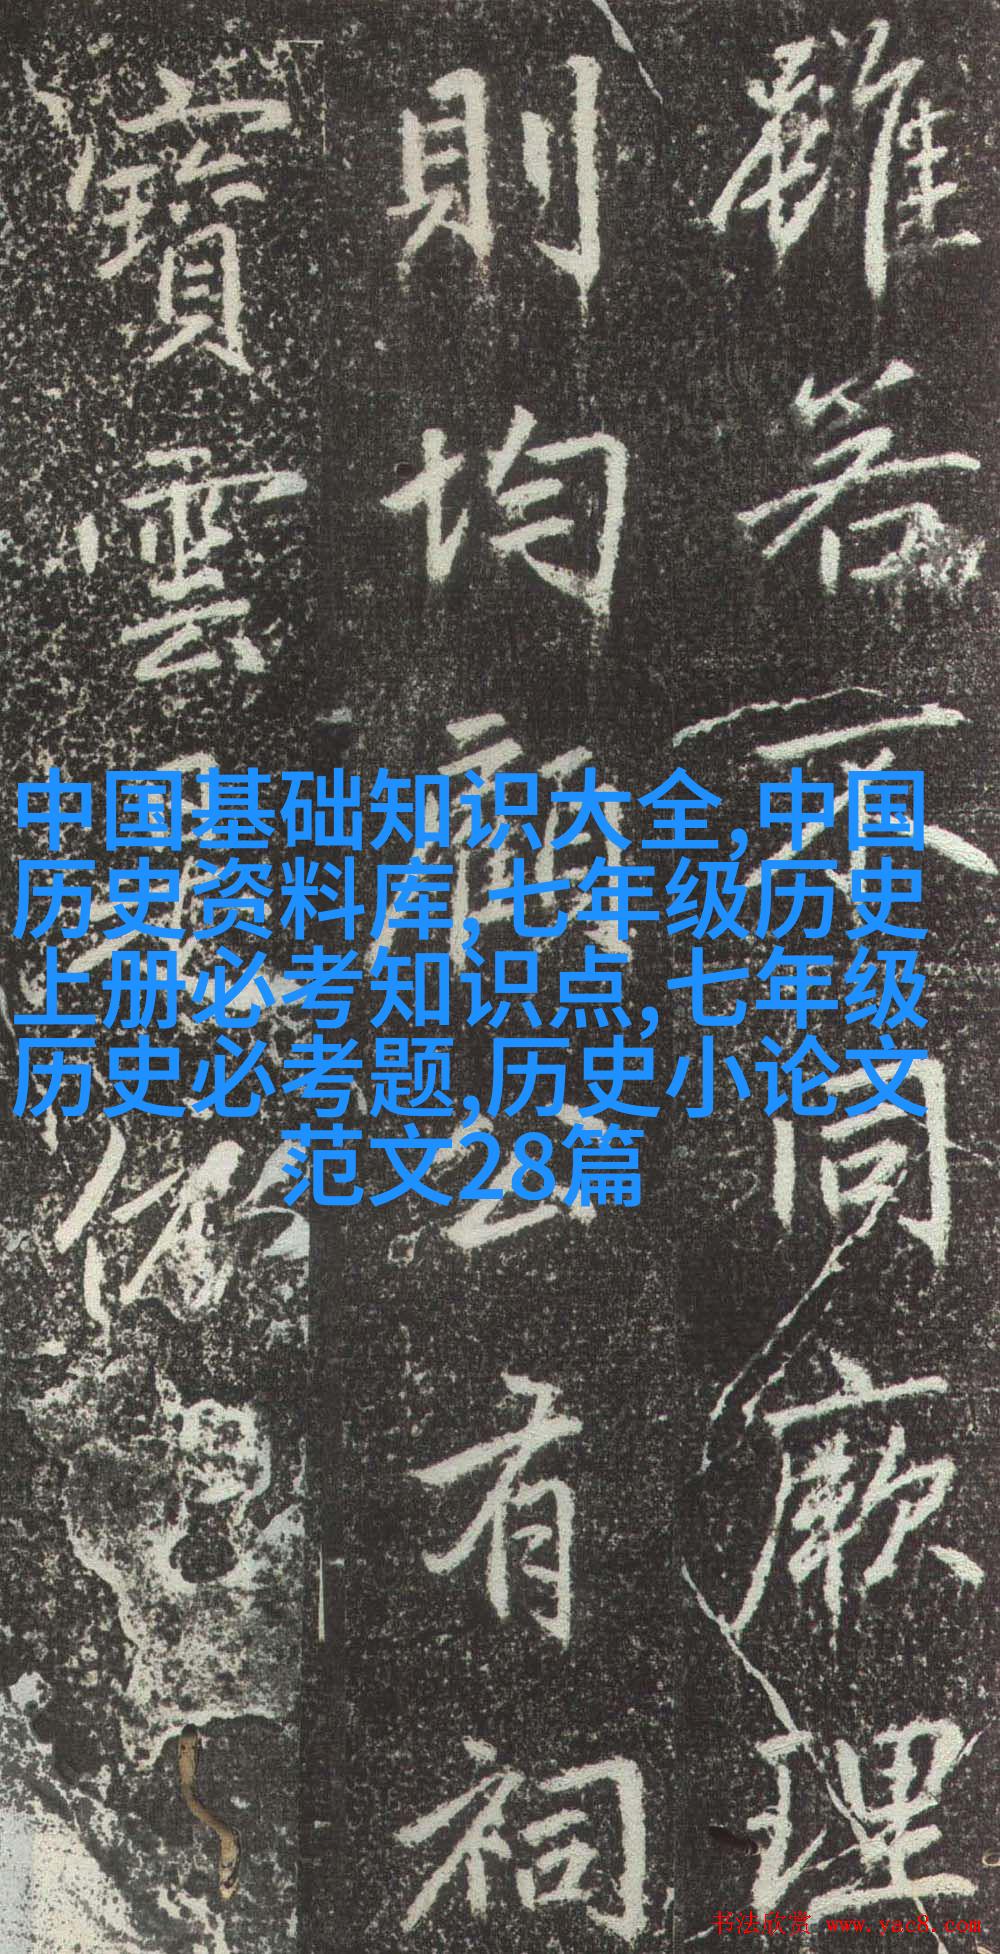 雖若不同厥理
則均公有祠
寶雲
中国基础知识大全,中国
历史资料库,七年级历史
上册必考知识点,七年级
历史必考题,历史小论文
范文28篇
书法欣赏 www.yac8.com